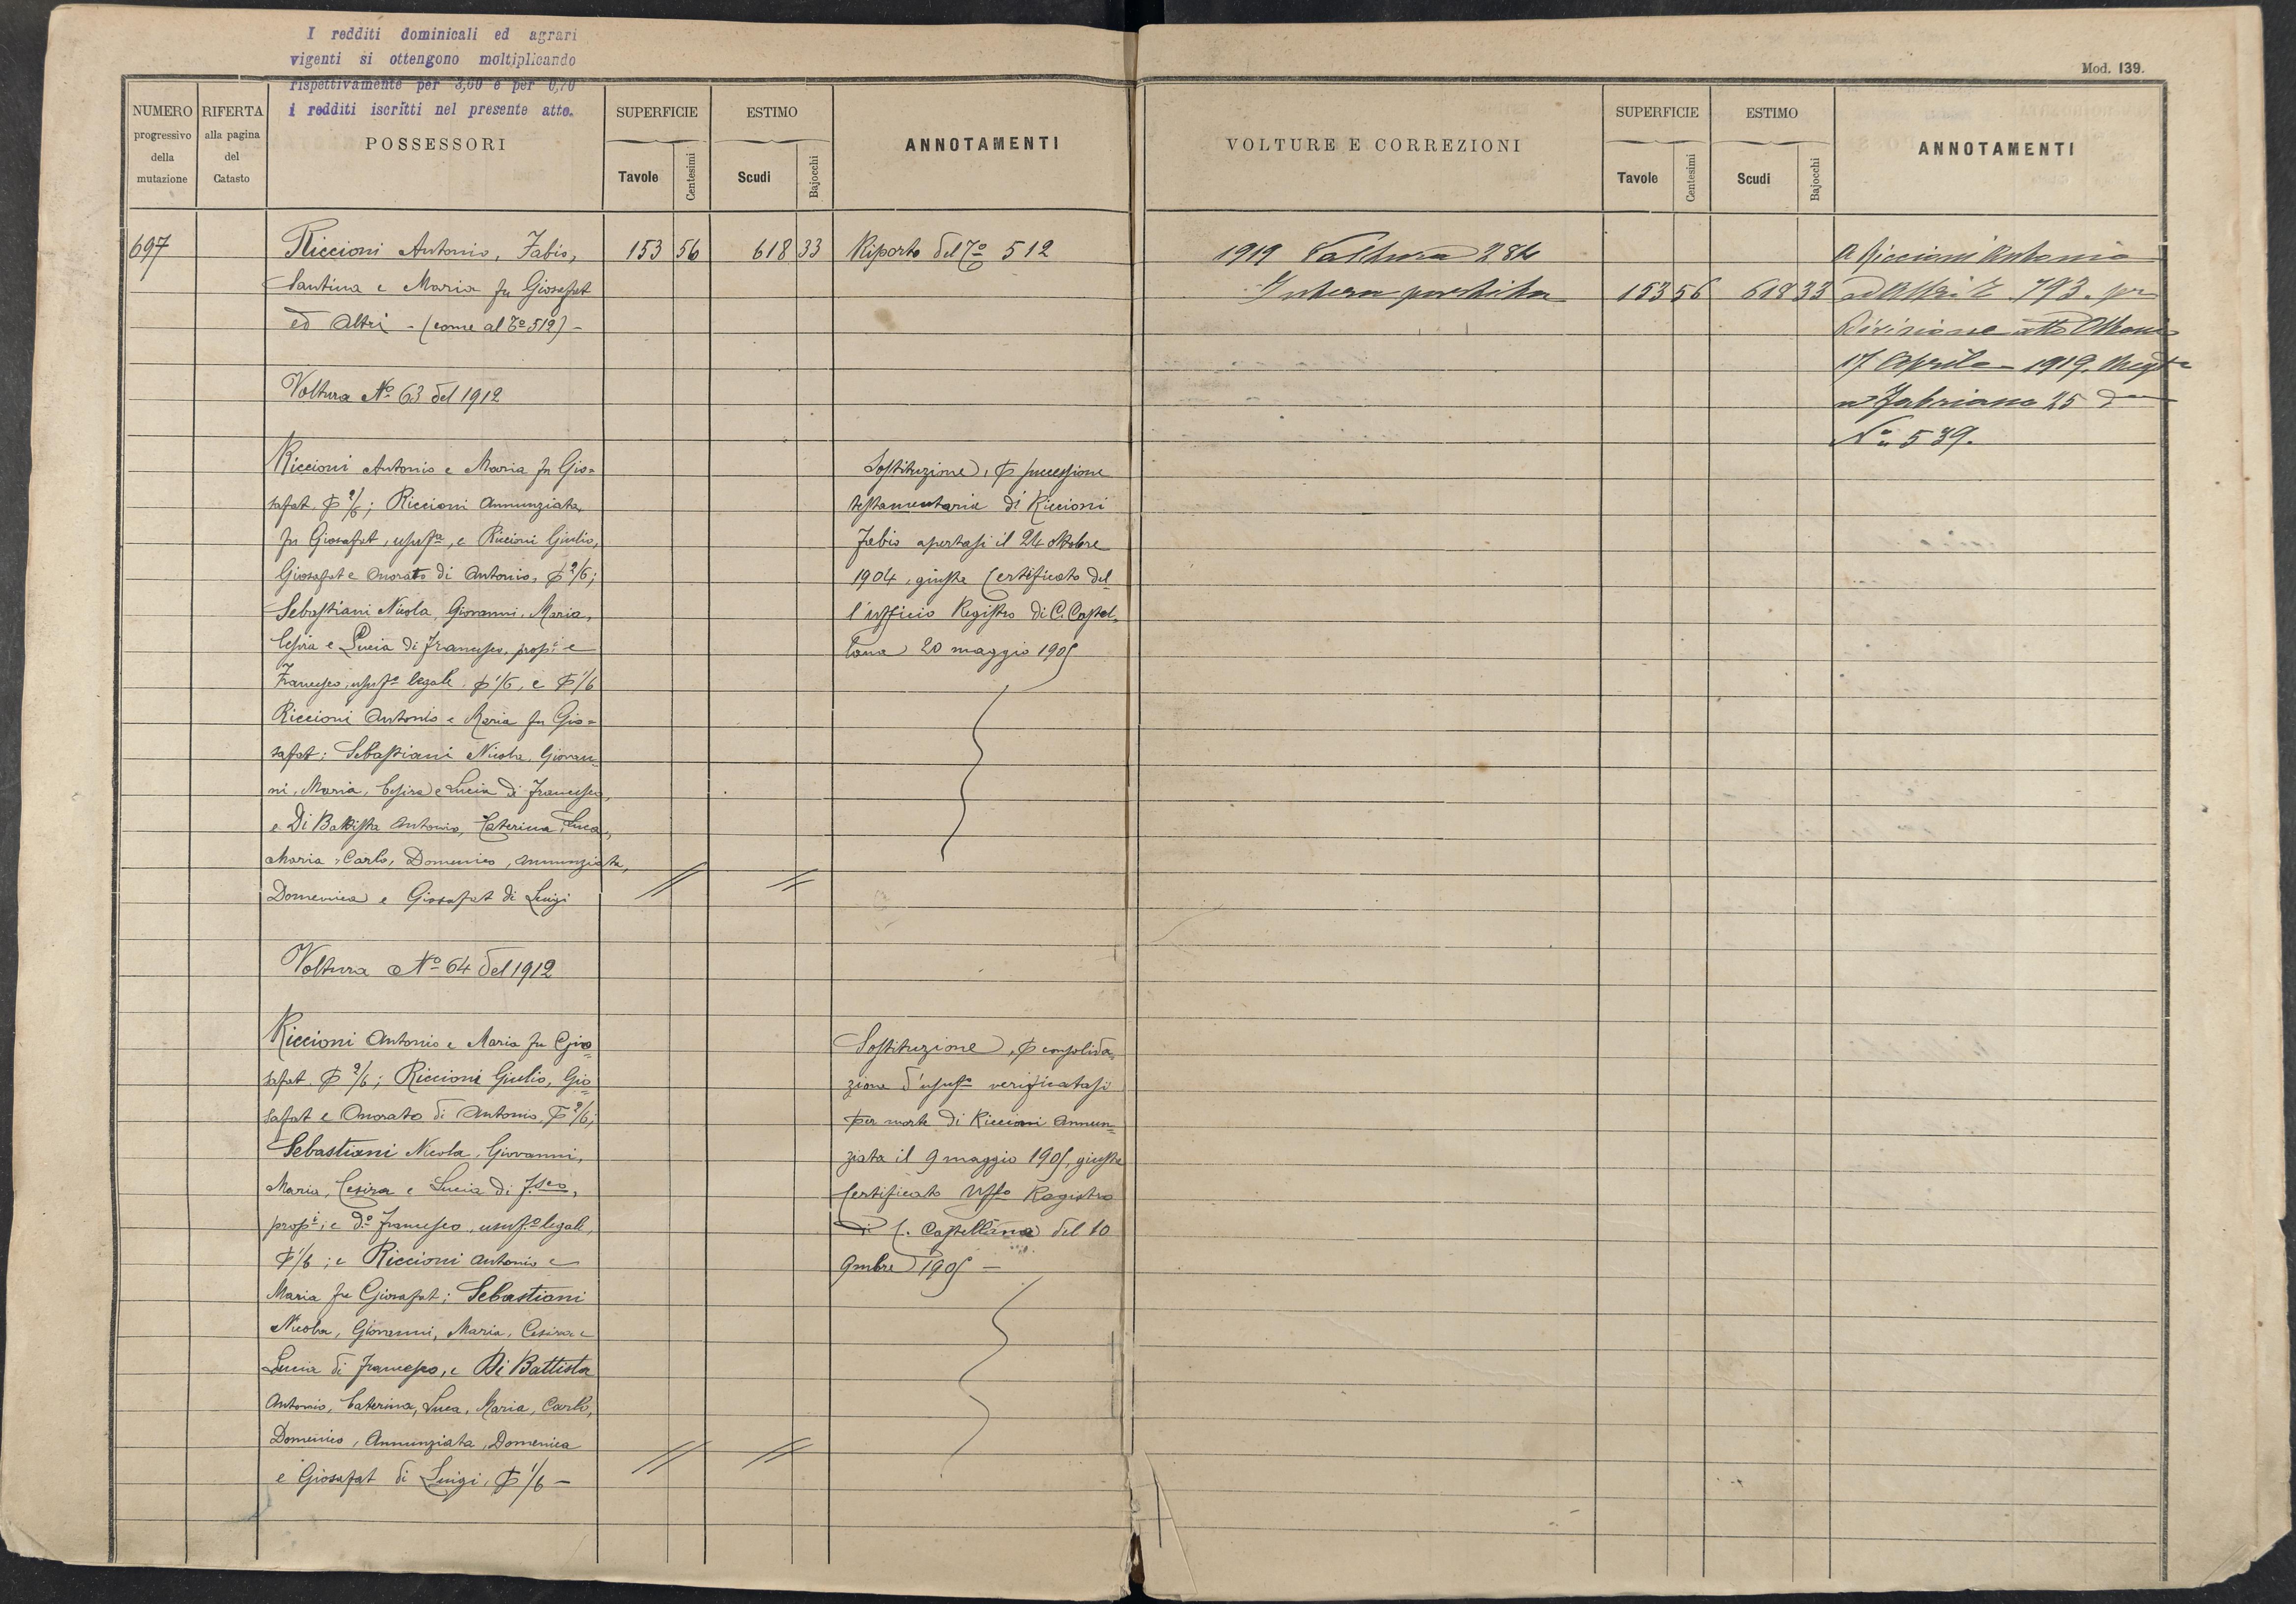 I redditi dominicali ed agrari
vigenti si ottengono moltiplicando
rispettivamente per 3,00 e per 0,70
i redditi iscritti nel presente atto.
Mod. 139.
NUMERO
progressivo
della
mutazione
RIFERTA
alla pagina
del
Catasto
POSSESSORI
SUPERFICIE
Tavole
Centesimi
ESTIMO
Scudi
Bajocchi
ANNOTAMENTI
VOLTURE E CORREZIONI
SUPERFICIE
Tavole
Centesimi
ESTIMO
Scudi
Bajocchi
ANNOTAMENTI
697
Riccioni Antonio, Fabio,
Santina e Maria fu Giosafat
ed Altri - (come al To 512) -
153 56
618 33
Riporto del To 512
Voltura No 63 del 1912
Riccioni Antonio e Maria fu Gio=
safat, P 2/6; Riccioni Annunziata
fu Giosafat, usufa, e Riccioni Giulio,
Giosafat e Onorato di Antonio, P 2/6;
Sebastiani Nicola, Giovanni, Maria,
Cesira e Lucia di Francesco, propi e
Francesco, usufo legale, P 1/6, e P 1/6
Riccioni Antonio e Maria fu Gio=
safat; Sebastiani Nicola, Giovan=
ni, Maria, Cesira e Lucia di Francesco,
e Di Battista Antonio, Caterina, Luca,
Maria, Carlo, Domenico, Annunziata,
Domenica e Giosafat di Luigi
Sostituzione, P successione
testamentaria di Riccioni
Fabio apertasi il 24 ottobre
1904, giusta Certificato del=
l'ufficio Registro di C. Castel=
lana 20 maggio 1905
Voltura No 64 del 1912
Riccioni Antonio e Maria fu Gio=
safat, P 2/6; Riccioni Giulio, Gio=
safat e Onorato di Antonio, P 2/6;
Sebastiani Nicola, Giovanni,
Maria, Cesira e Lucia di F.sco,
propi, e do Francesco, usufo legale,
P 1/6; e Riccioni Antonio e
Maria fu Giosafat; Sebastiani
Nicola, Giovanni, Maria, Cesira e
Lucia di Francesco, e Di Battista
Antonio, Caterina, Luca, Maria, Carlo,
Domenico, Annunziata, Domenica
e Giosafat di Luigi, P 1/6 -
Sostituzione, P consolida=
zione d'usufo verificatasi
per morte di Riccioni Annun=
ziata il 9 maggio 1905, giusta
Certificato Uffo Registro
di C. Castellana del 10
9mbre 1905 -
1919 Voltura 284
Intera partita
153 56
618 33
A Riccioni Antonio
ed Altri T 793. per
Divisione atto
17 Aprile 1919. Regto
a Fabriano 25 do
No 539.